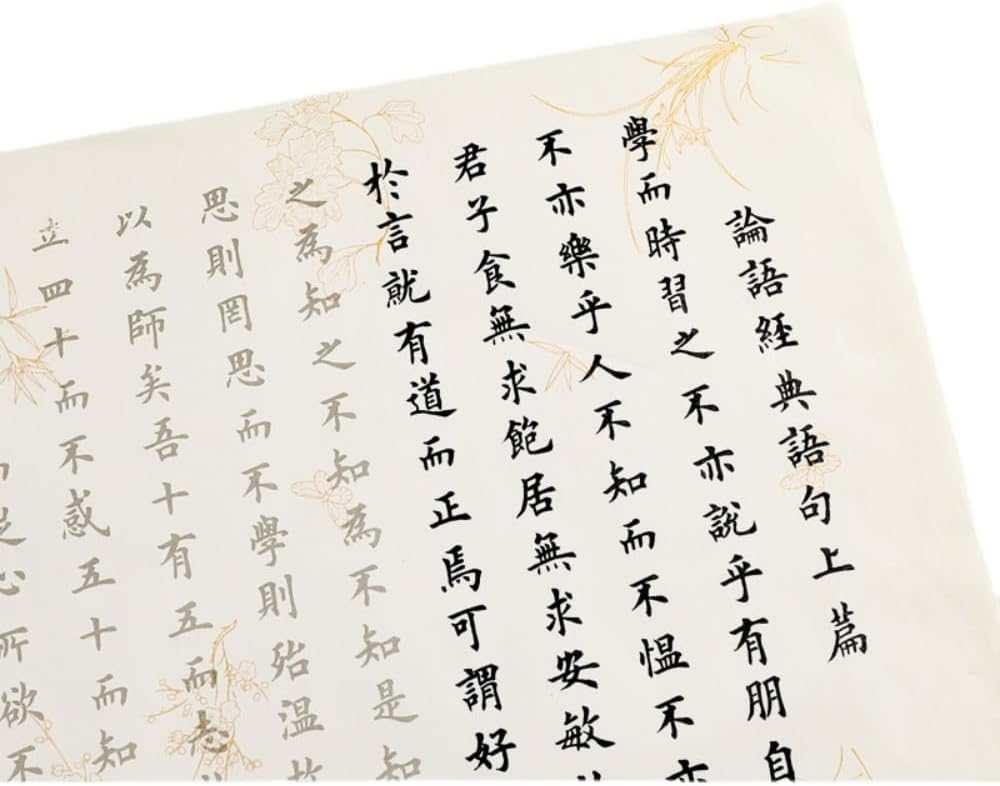 論語経典語句上篇
學而時習之不亦說乎有朋自
不亦樂乎人不知而不愠不亦
君子食無求飽居無求安敏
於言就有道而正焉可謂好
之為知之不知為不知是知
思則罔思而不學則殆温故
以為師矣吾十有五而志
立四十而不惑五十而知
心所欲不